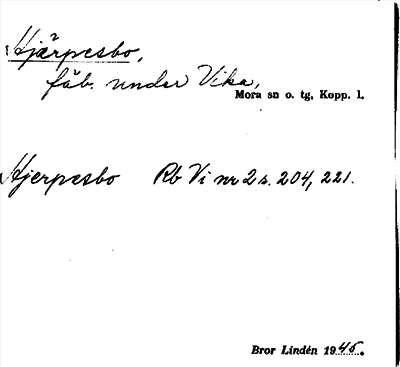 Hjärpesbo,
fäb. under Vika,
Mora sn o. tg, Kopp. l.
Hjerpesbo Rb Vi nr 2 s. 204, 221.
Bror Lindén 1945.